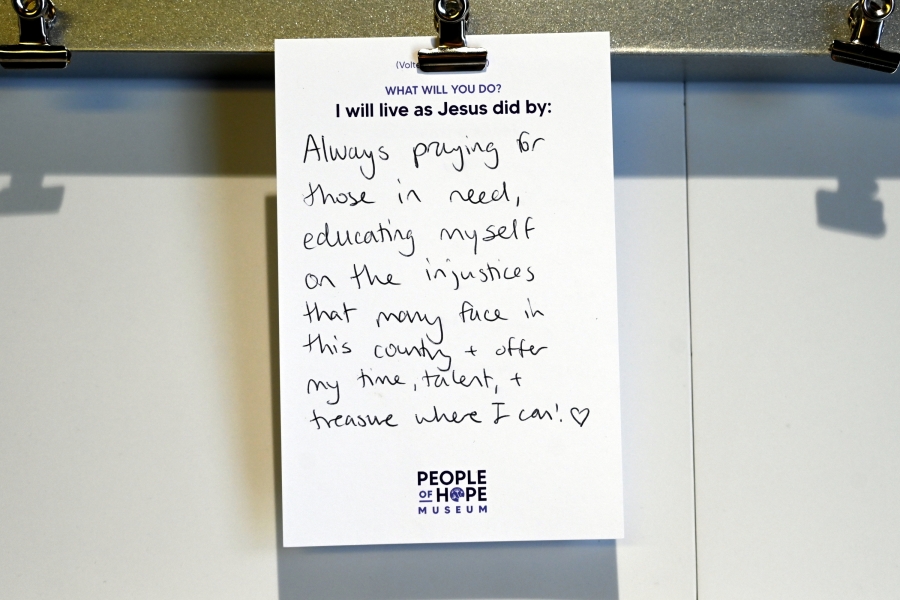 WHAT WILL YOU DO?
I will live as Jesus did by:
Always praying for
those in need,
educating myself
on the injustices
that many face in
this country + offer
my time, talent, +
treasure where I can! ♡
PEOPLE
OF HOPE
MUSEUM